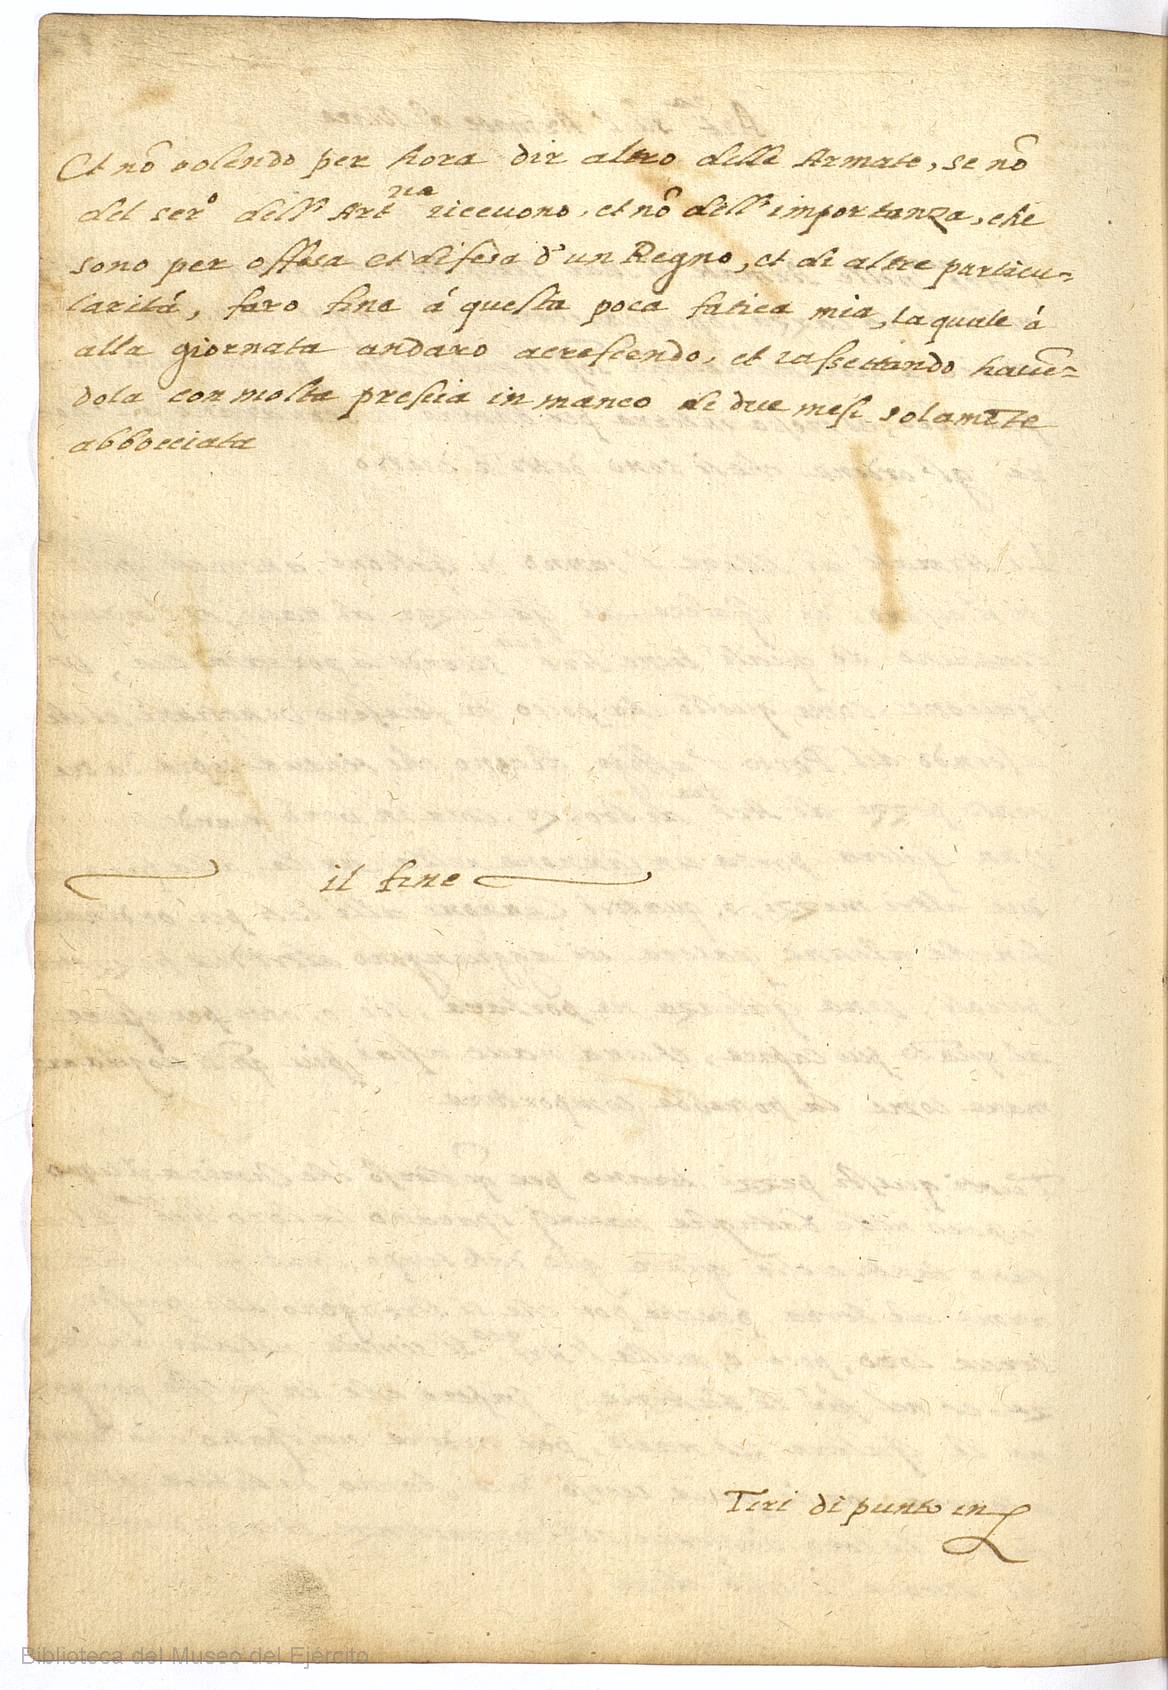 Et nõ volendo per hora dir altro delle Armate, se nõ
del ser.º dell' Art.ria ricevono, et nõ dell' importanza, che
sono per offesa et difesa d' un Regno, et di altre particu-
laritá, faro fine á questa poca fatica mia, la quale á
alla giornata andaro acrescendo, et rassettando havẽ-
dola con molta prescia in manco di due mesi solamẽte
abbocciata
il fine
Tiri di punto in
Biblioteca del Museo del Ejército